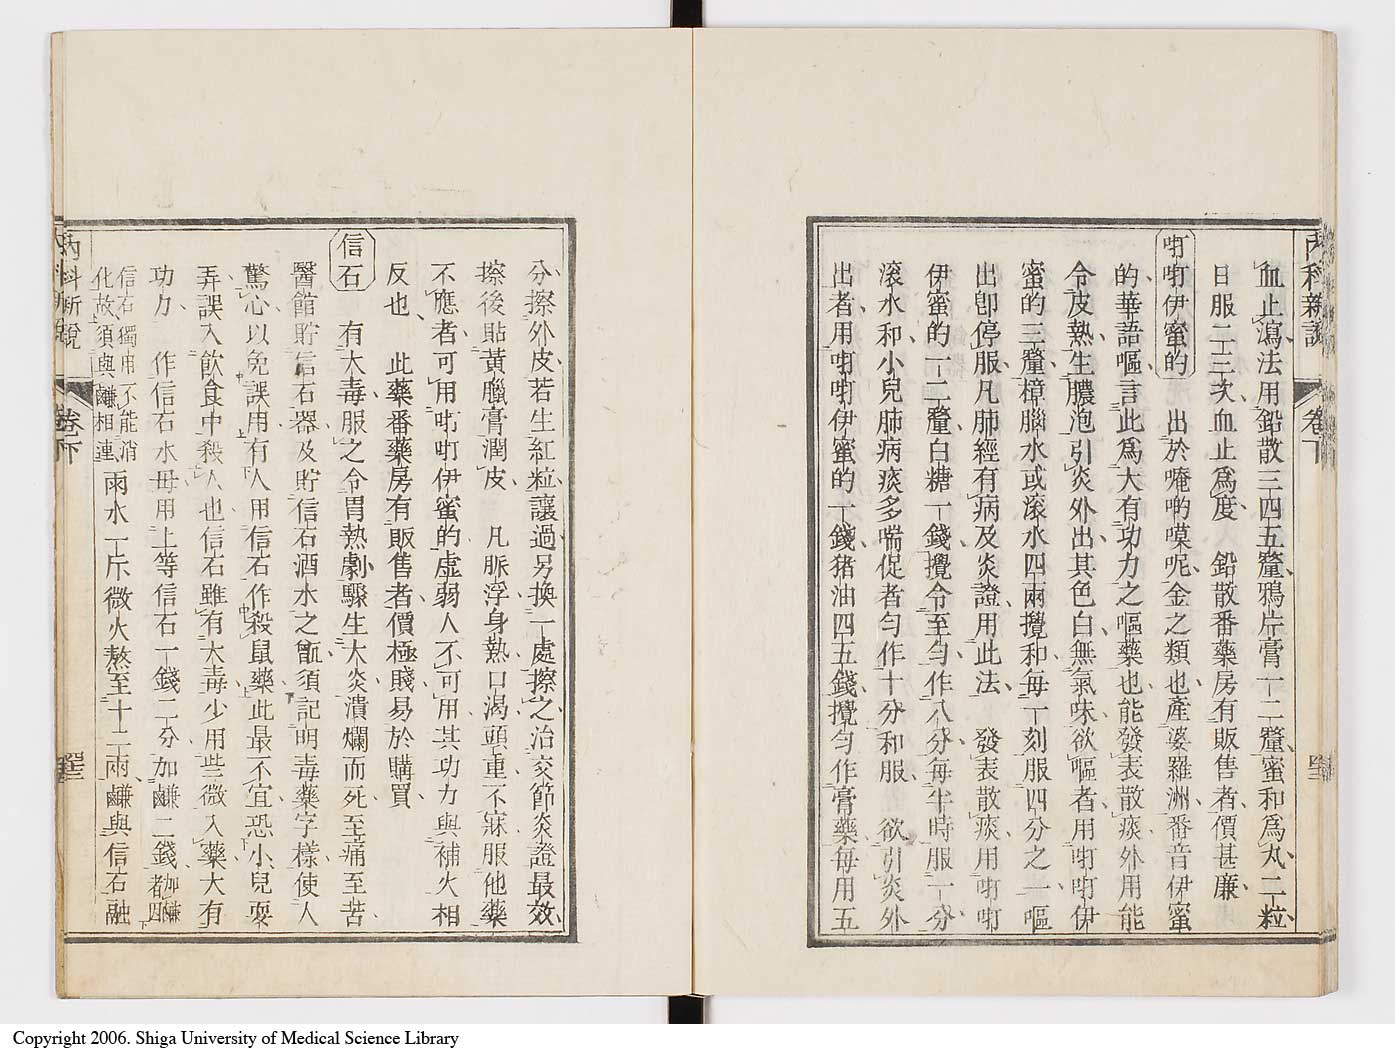 內科新說
卷下
血止瀉法用鉛散三四五釐鴉片膏一二釐蜜和爲丸二粒
日服二三次血止爲度　鉛散番藥房有販售者價甚廉
𠸄𠸄伊蜜的　出於唵啲嘆呢金之類也產婆羅洲番音伊蜜
的華語嘔言此爲大有功力之嘔藥也能發表散痰外用能
令皮熱生膿泡引炎外出其色白無氣味欲嘔者用
伊
蜜的三釐樟腦水或滾水四兩攪和每一刻服四分之一嘔
出卽停服凡肺經有病及炎證用此法　發表散痰用
伊蜜的一二釐白糖一錢攪令至勻作八分每半時服一分
滾水和小兒肺病痰多喘促者勻作十分和服　欲引炎外
出者用
伊蜜的一錢猪油四五錢攪勻作膏藥每用五
分擦外皮若生紅粒讓過另換一處擦之治交節炎證最效
擦後貼黃臘膏潤皮　凡脈浮身熱口渴頭重不寐服他藥
不應者可用
伊蜜的虛弱人不可用其功力與補火相
反也　此藥番藥房有販售者價極賤易於購買
信石　有大毒服之令胃熱劇驟生大炎潰爛而死至痛至苦
醫館貯信石器及貯信石酒水之甑須記明毒藥字樣使人
驚心以免誤用有人用信石作殺鼠藥此最不宜恐小兒耍
弄誤入飲食中殺人也信石雖有大毒少用些微入藥大有
功力　作信石水毋用上等信石一錢二分加鹻二錢加鹻者因
信石獨用不能消化故須與鹻相連雨水一斤微火熬至十二兩鹻與信石融
內科新說
卷下
Copyright 2006. Shiga University of Medical Science Library